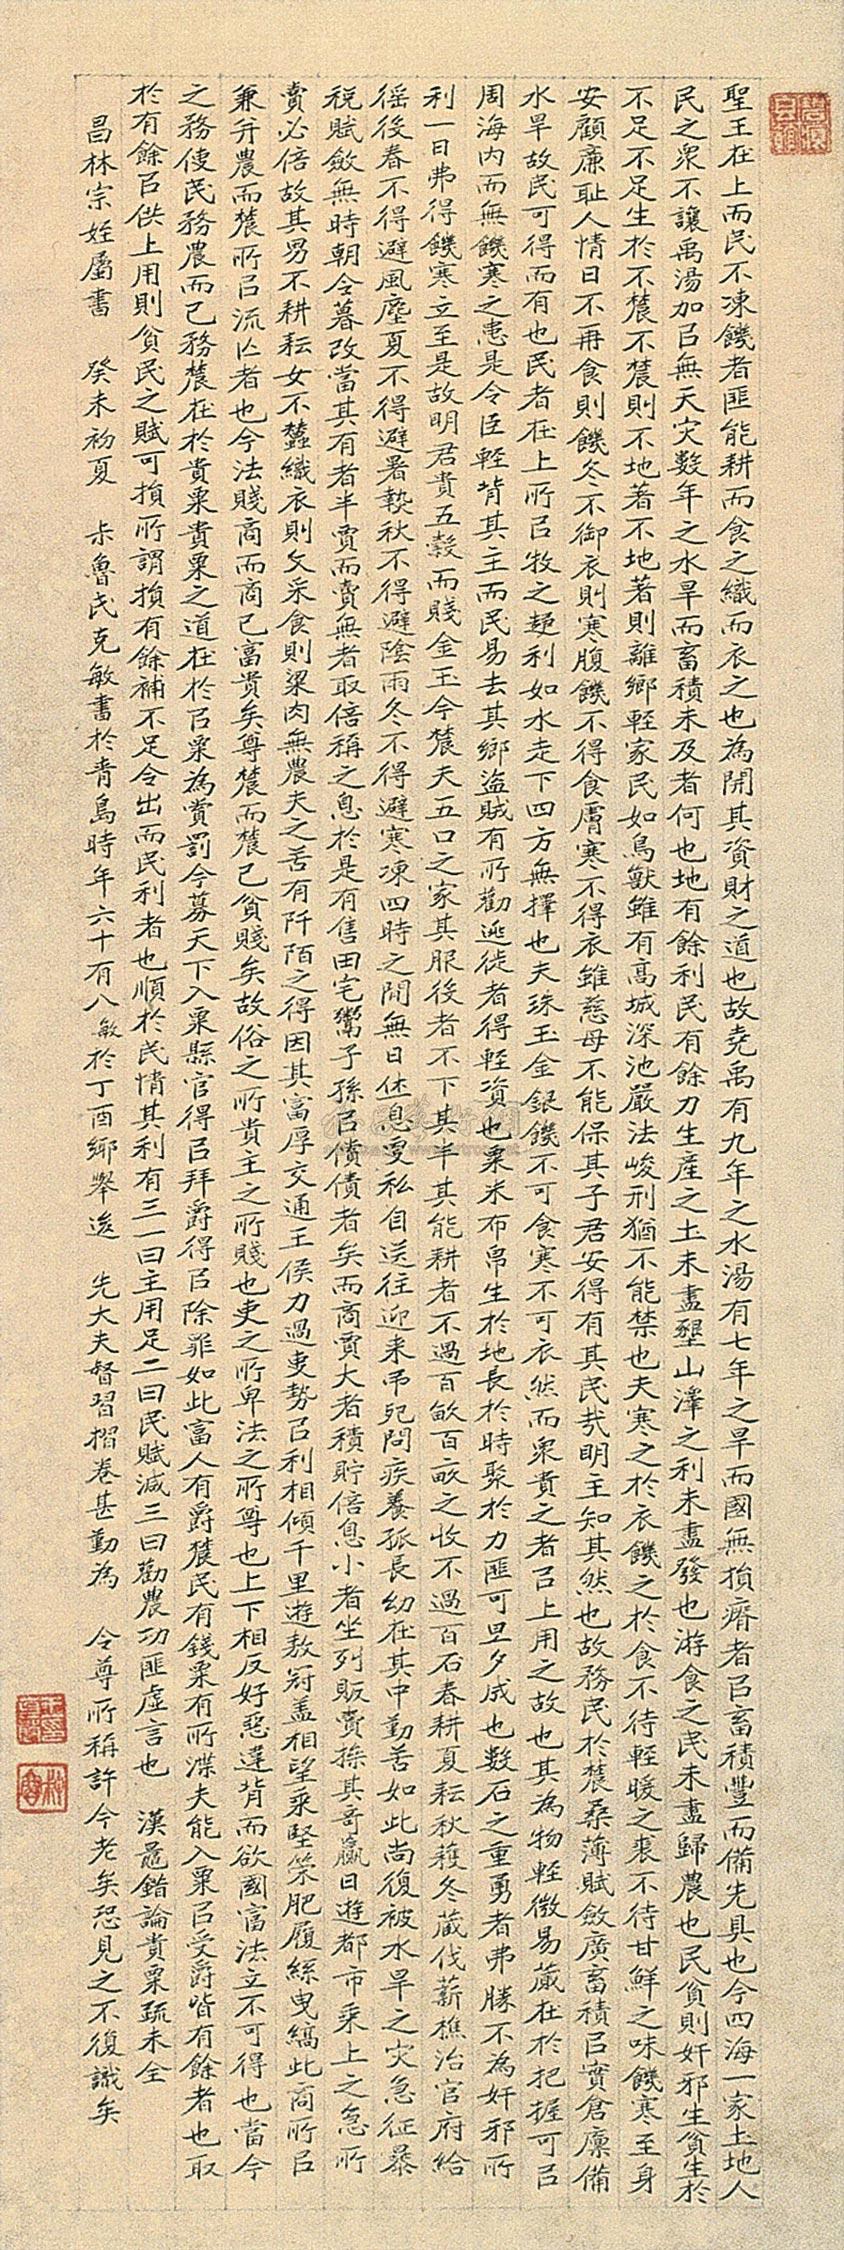 聖王在上而民不凍饑者匪能耕而食之織而衣之也為開其資財之道也故堯禹有九年之水湯有七年之旱而國無損瘠者㠯畜積豐而備先具也今四海一家土地人
民之眾不讓禹湯加㠯無天灾數年之水旱而畜積未及者何也地有餘利民有餘力生產之土未盡墾山澤之利未盡發也游食之民未盡歸農也民貧則奸邪生貧生於
不足不足生於不農不農則不地著不地著則離鄉輕家民如鳥獸雖有高城深池嚴法峻刑猶不能禁也夫寒之於衣饑之於食不待輕暖之裘不待甘鮮之味饑寒至身
安顧廉耻人情日不再食則饑冬不御衣則寒腹饑不得食膚寒不得衣雖慈母不能保其子君安得有其民哉明主知其然也故務民於農桑薄賦斂廣畜積㠯實倉廩備
水旱故民可得而有也民者在上所㠯牧之趨利如水走下四方無擇也夫珠玉金銀饑不可食寒不可衣然而眾貴之者㠯上用之故也其為物輕微易藏在於把握可㠯
周海內而無饑寒之患是令臣輕背其主而民易去其鄉盜賊有所勸逃徒者得輕資也粟米布帛生於地長於時聚於力匪可旦夕成也數石之重勇者弗勝不為奸邪所
利一日弗得饑寒立至是故明君貴五穀而賤金玉今農夫五口之家其服役者不下其半其能耕者不過百畝百畝之收不過百石春耕夏耘秋穫冬藏伐薪樵治官府給
徭役春不得避風塵夏不得避暑熱秋不得避陰雨冬不得避寒凍四時之間無日休息叓私自送往迎来吊死問疾養孤長幼在其中勤苦如此尚復被水旱之灾急征暴
稅賦斂無時朝令暮改當其有者半賈而賣無者取倍稱之息於是有售田宅鬻子孫㠯償債者矣而商賈大者積貯倍息小者坐列販賣操其奇贏日遊都市乘上之急所
賣必倍故其男不耕耘女不蠶織衣則文采食則粱肉無農夫之苦有阡陌之得因其富厚交通王侯力過吏勢㠯利相傾千里遊敖冠盖相望乘堅策肥履絲曳縞此商所㠯
兼并農而農所㠯流亡者也今法賤商而商已富貴矣尊農而農已貧賤矣故俗之所貴主之所賤也吏之所卑法之所尊也上下相反好惡違背而欲國富法立不可得也當今
之務使民務農而已務農在於貴粟貴粟之道在於㠯粟為賞罰今募天下入粟縣官得㠯拜爵得㠯除罪如此富人有爵農民有錢粟有所渫夫能入粟㠯受爵皆有餘者也取
於有餘㠯供上用則貧民之賦可損所謂損有餘補不足令出而民利者也順於民情其利有三一曰主用足二曰民賦減三曰勸農功匪虛言也 漢鼂錯論貴粟疏未全
昌林宗姪屬書 癸未初夏 卡魯民克敏書於青島時年六十有八 敏於丁酉鄉舉後 先大夫督習摺卷甚勤為 令尊所稱許今老矣恐見之不復識矣